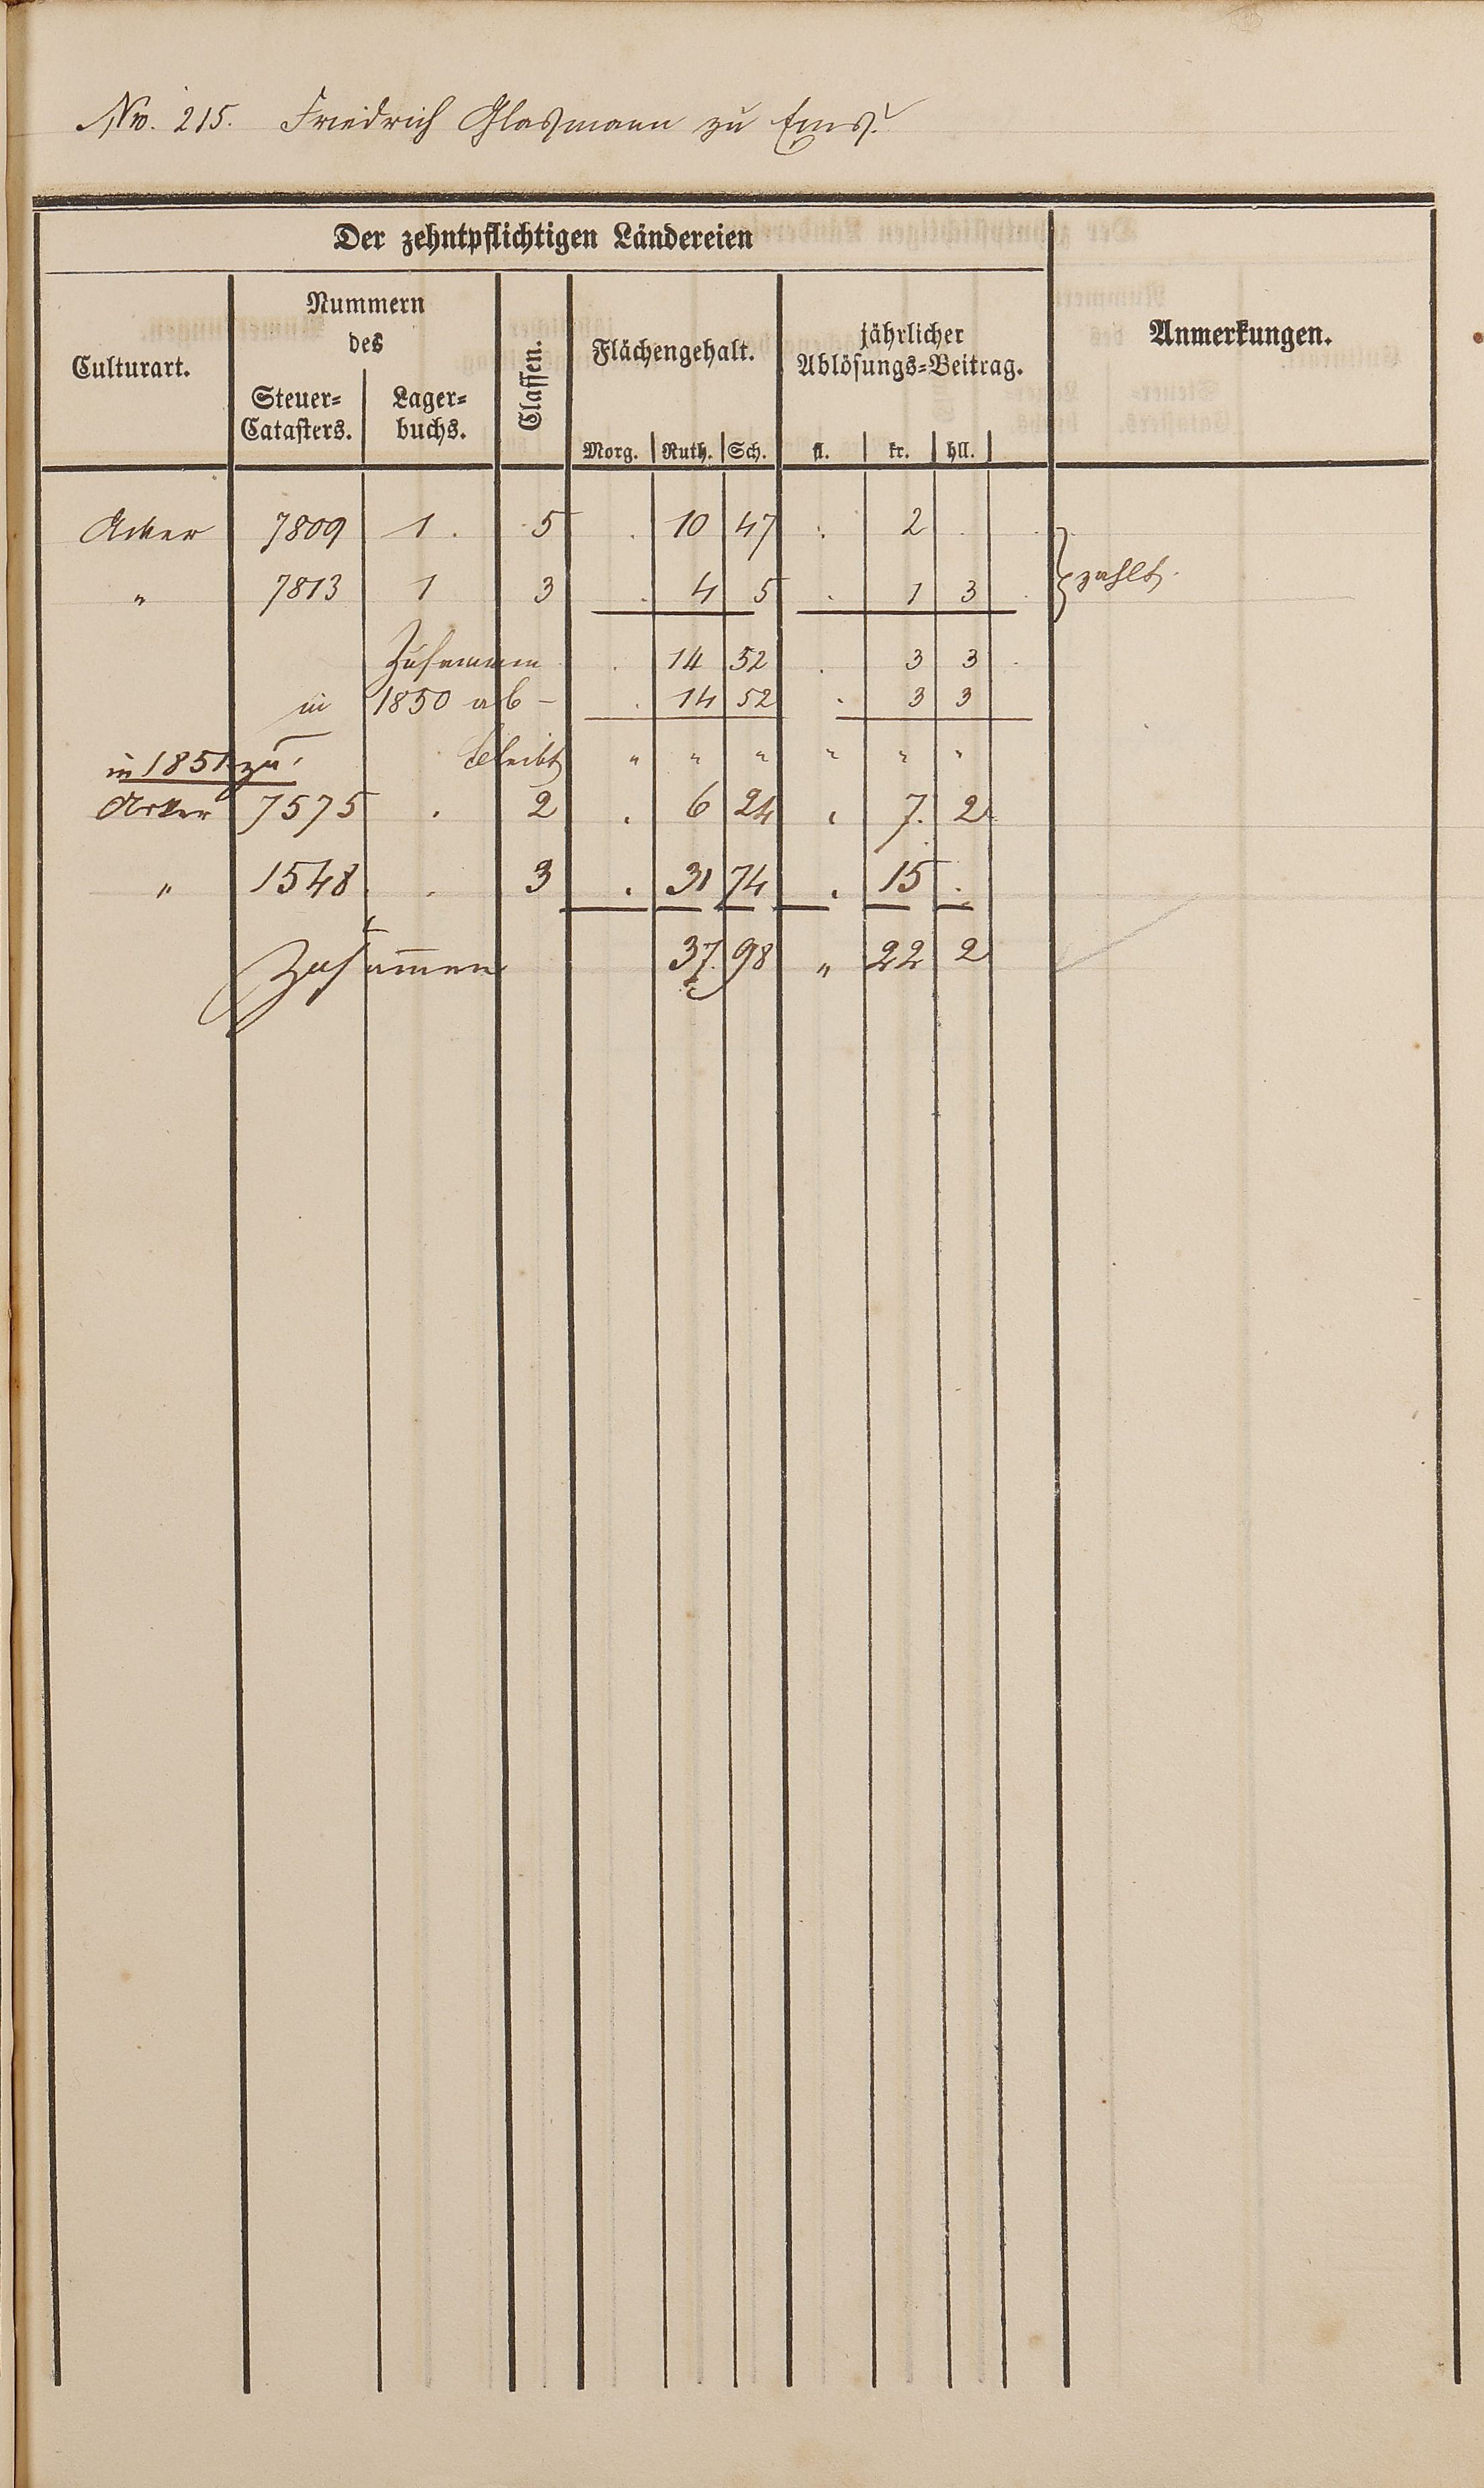 No. 215. Friedrich Glasmann zu Ems.
Der zehntpflichtigen Ländereien
Culturart.
Nummern
des
Steuer=
Catasters.
Lager=
buchs.
Classen.
Flächengehalt.
Morg. Ruth. Sch.
jährlicher
Ablösungs=Beitrag.
fl. kr. hll.
Anmerkungen.
Acker 7809 1. 5 . 10 47 . 2 .
" 7813 1 3 . 4 5 . 1 3 . } zahlt.
Zusammen . 14 52 . 3 3 .
in 1850 ab – . 14 52 . 3 3
bleibt " " " " " "
in 1851 zu.
Acker 7575 . 2 . 6 24 . 7. 2.
" 1548 . 3 . 31 74 . 15 .
Zusammen 37. 98 " 22 2